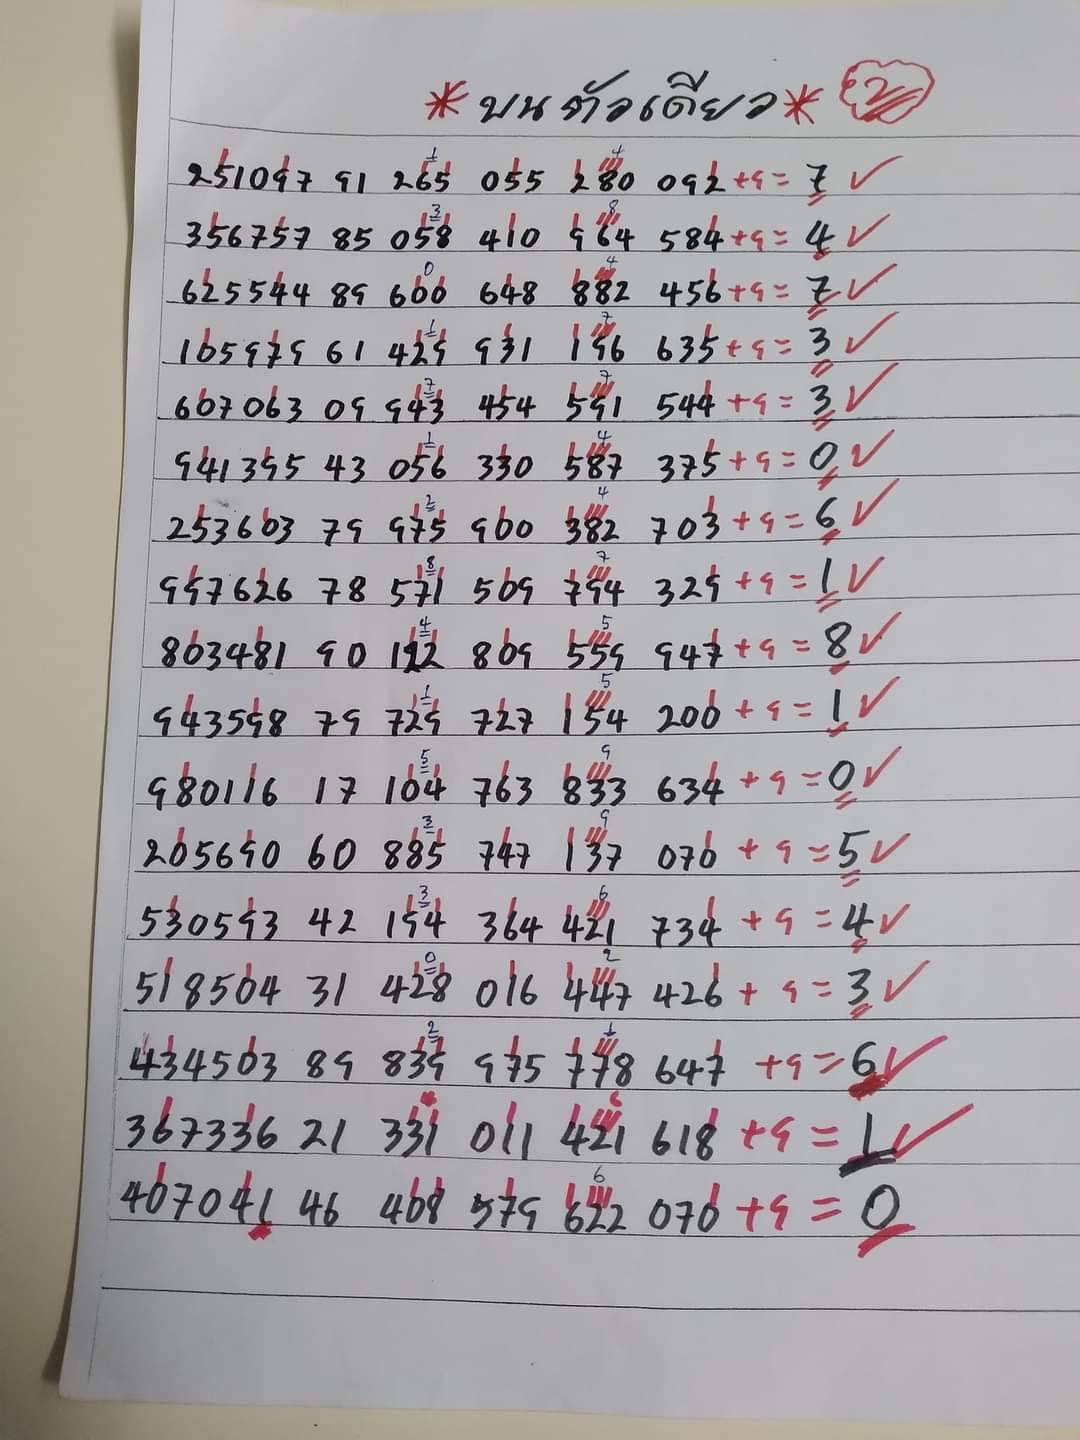 * บนตัวเดียว * 2
1 4
251097 91 265 055 280 092 +9= 7 ✓
3 8
356757 85 058 410 964 584 +9= 4 ✓
0 4
625544 89 600 648 882 456 +9= 7 ✓
1 7
105979 61 429 931 196 635 +9= 3 ✓
7 7
607063 09 943 454 591 544 +9= 3 ✓
1 4
941395 43 056 330 587 375 +9= 0 ✓
2 4
253603 79 975 900 382 703 +9= 6 ✓
8 7
997626 78 571 509 794 329 +9= 1 ✓
4 5
803481 90 192 809 559 947 +9= 8 ✓
1 5
943598 79 729 727 154 200 +9= 1 ✓
5 9
980116 17 104 763 833 634 +9=0 ✓
3 9
205690 60 885 747 137 070 +9=5 ✓
3 6
530593 42 194 364 421 734 +9=4 ✓
0 2
518504 31 428 016 447 426 +9=3 ✓
2 1
434503 89 839 975 778 647 +9=6 ✓
6
367336 21 331 011 421 618 +9=1 ✓
6
407041 46 408 579 622 070 +9=0